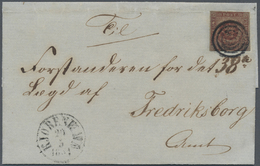 Til
Forstanderen for det 38te
Lægd af
Fredriksborg
Amt
KIØBENHAVN